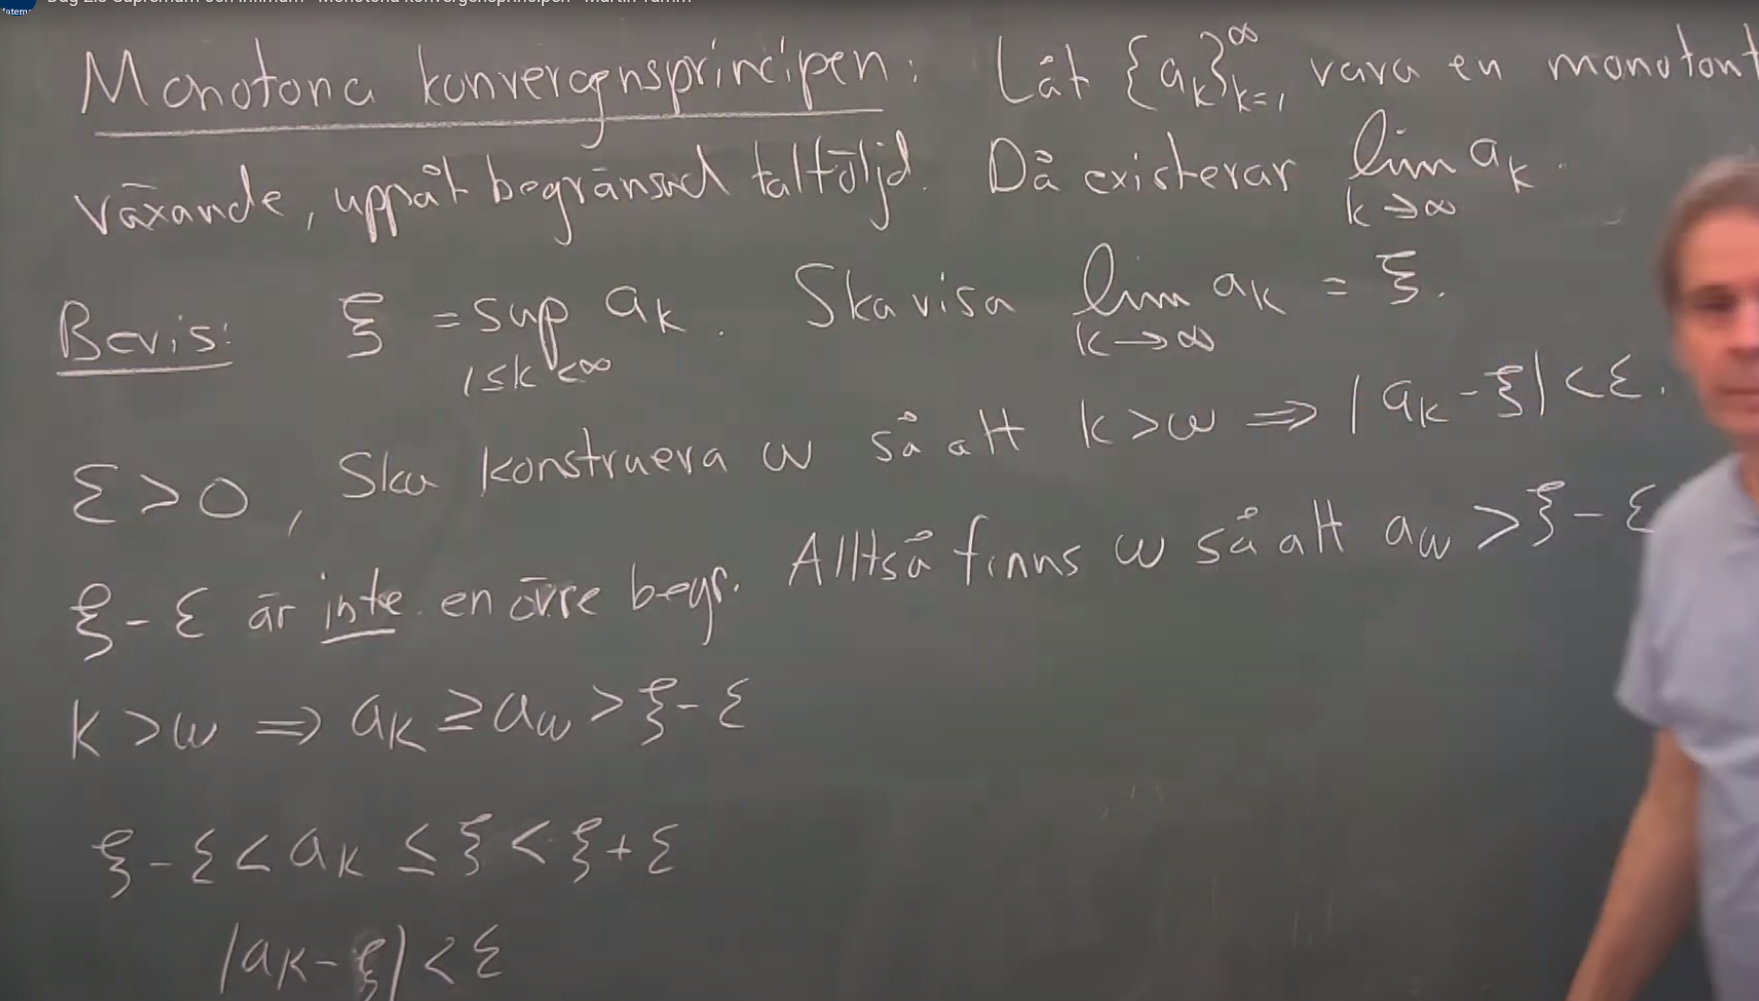 Matem
Dag 2.3 Supremum och infimum - Monotona konvergensprincipen - Martin Tamm
Monotona konvergensprincipen: Låt {a_k}_{k=1}^∞ vara en monotont
växande, uppåt begränsad talföljd. Då existerar lim_{k→∞} a_k.
Bevis: ξ = sup_{1≤k<∞} a_k. Ska visa lim_{k→∞} a_k = ξ.
ε>0, Ska konstruera ω så att k>ω ⇒ |a_k-ξ|<ε.
ξ-ε är inte en övre begr. Alltså finns ω så att a_ω >ξ-ε
k>ω ⇒ a_k ≥ a_ω > ξ-ε
ξ-ε < a_k ≤ ξ < ξ+ε
|a_k-ξ| < ε